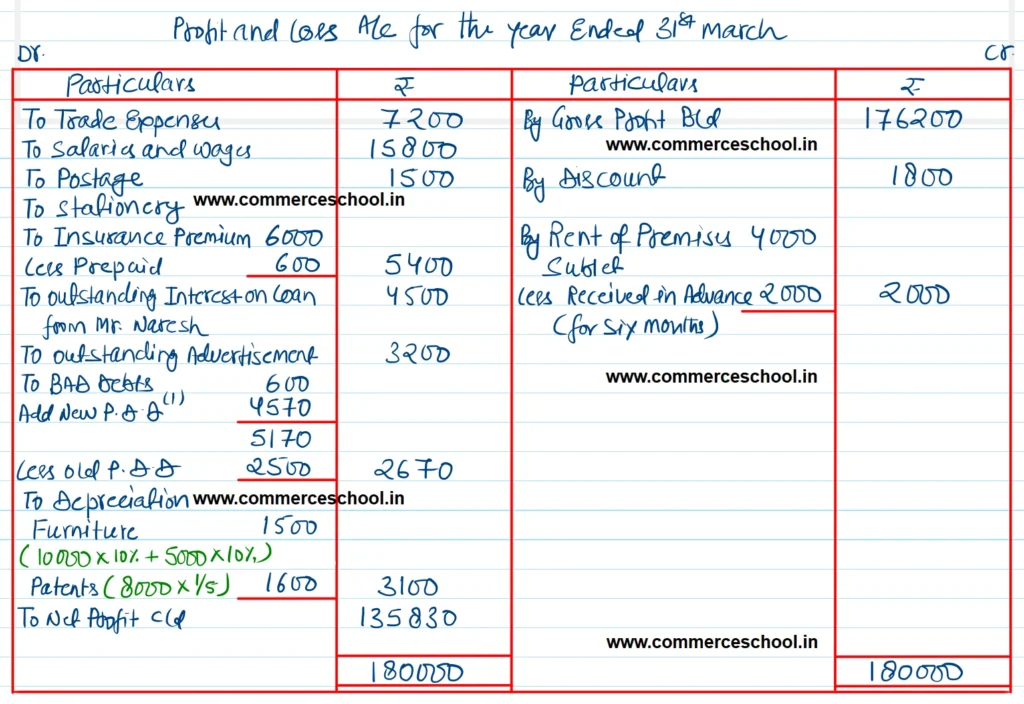 Profit and Loss A/c for the year Ended 31st march
Dr. Cr.
Particulars ₹ Particulars ₹
To Trade Expenses 7200 By Gross Profit B/d 176200
www.commerceschool.in
To Salaries and wages 15800
To Postage 1500 By Discount 1800
To Stationery www.commerceschool.in
To Insurance Premium 6000 By Rent of Premises 4000
Less Prepaid 600 5400 Sublet
To outstanding Interest on Loan 4500 Less Received in Advance 2000 2000
from Mr. Naresh (for six months)
To outstanding Advertisement 3200
To BAD Debts 600 www.commerceschool.in
Add New P.D.D (1) 4570
5170
Less old P.D.D 2500 2670
To Depreciation www.commerceschool.in
Furniture 1500
(10000 x 10% + 5000 x 10%)
Patents (8000 x 1/5) 1600 3100
To Net Profit C/d 135830
www.commerceschool.in
180000 180000